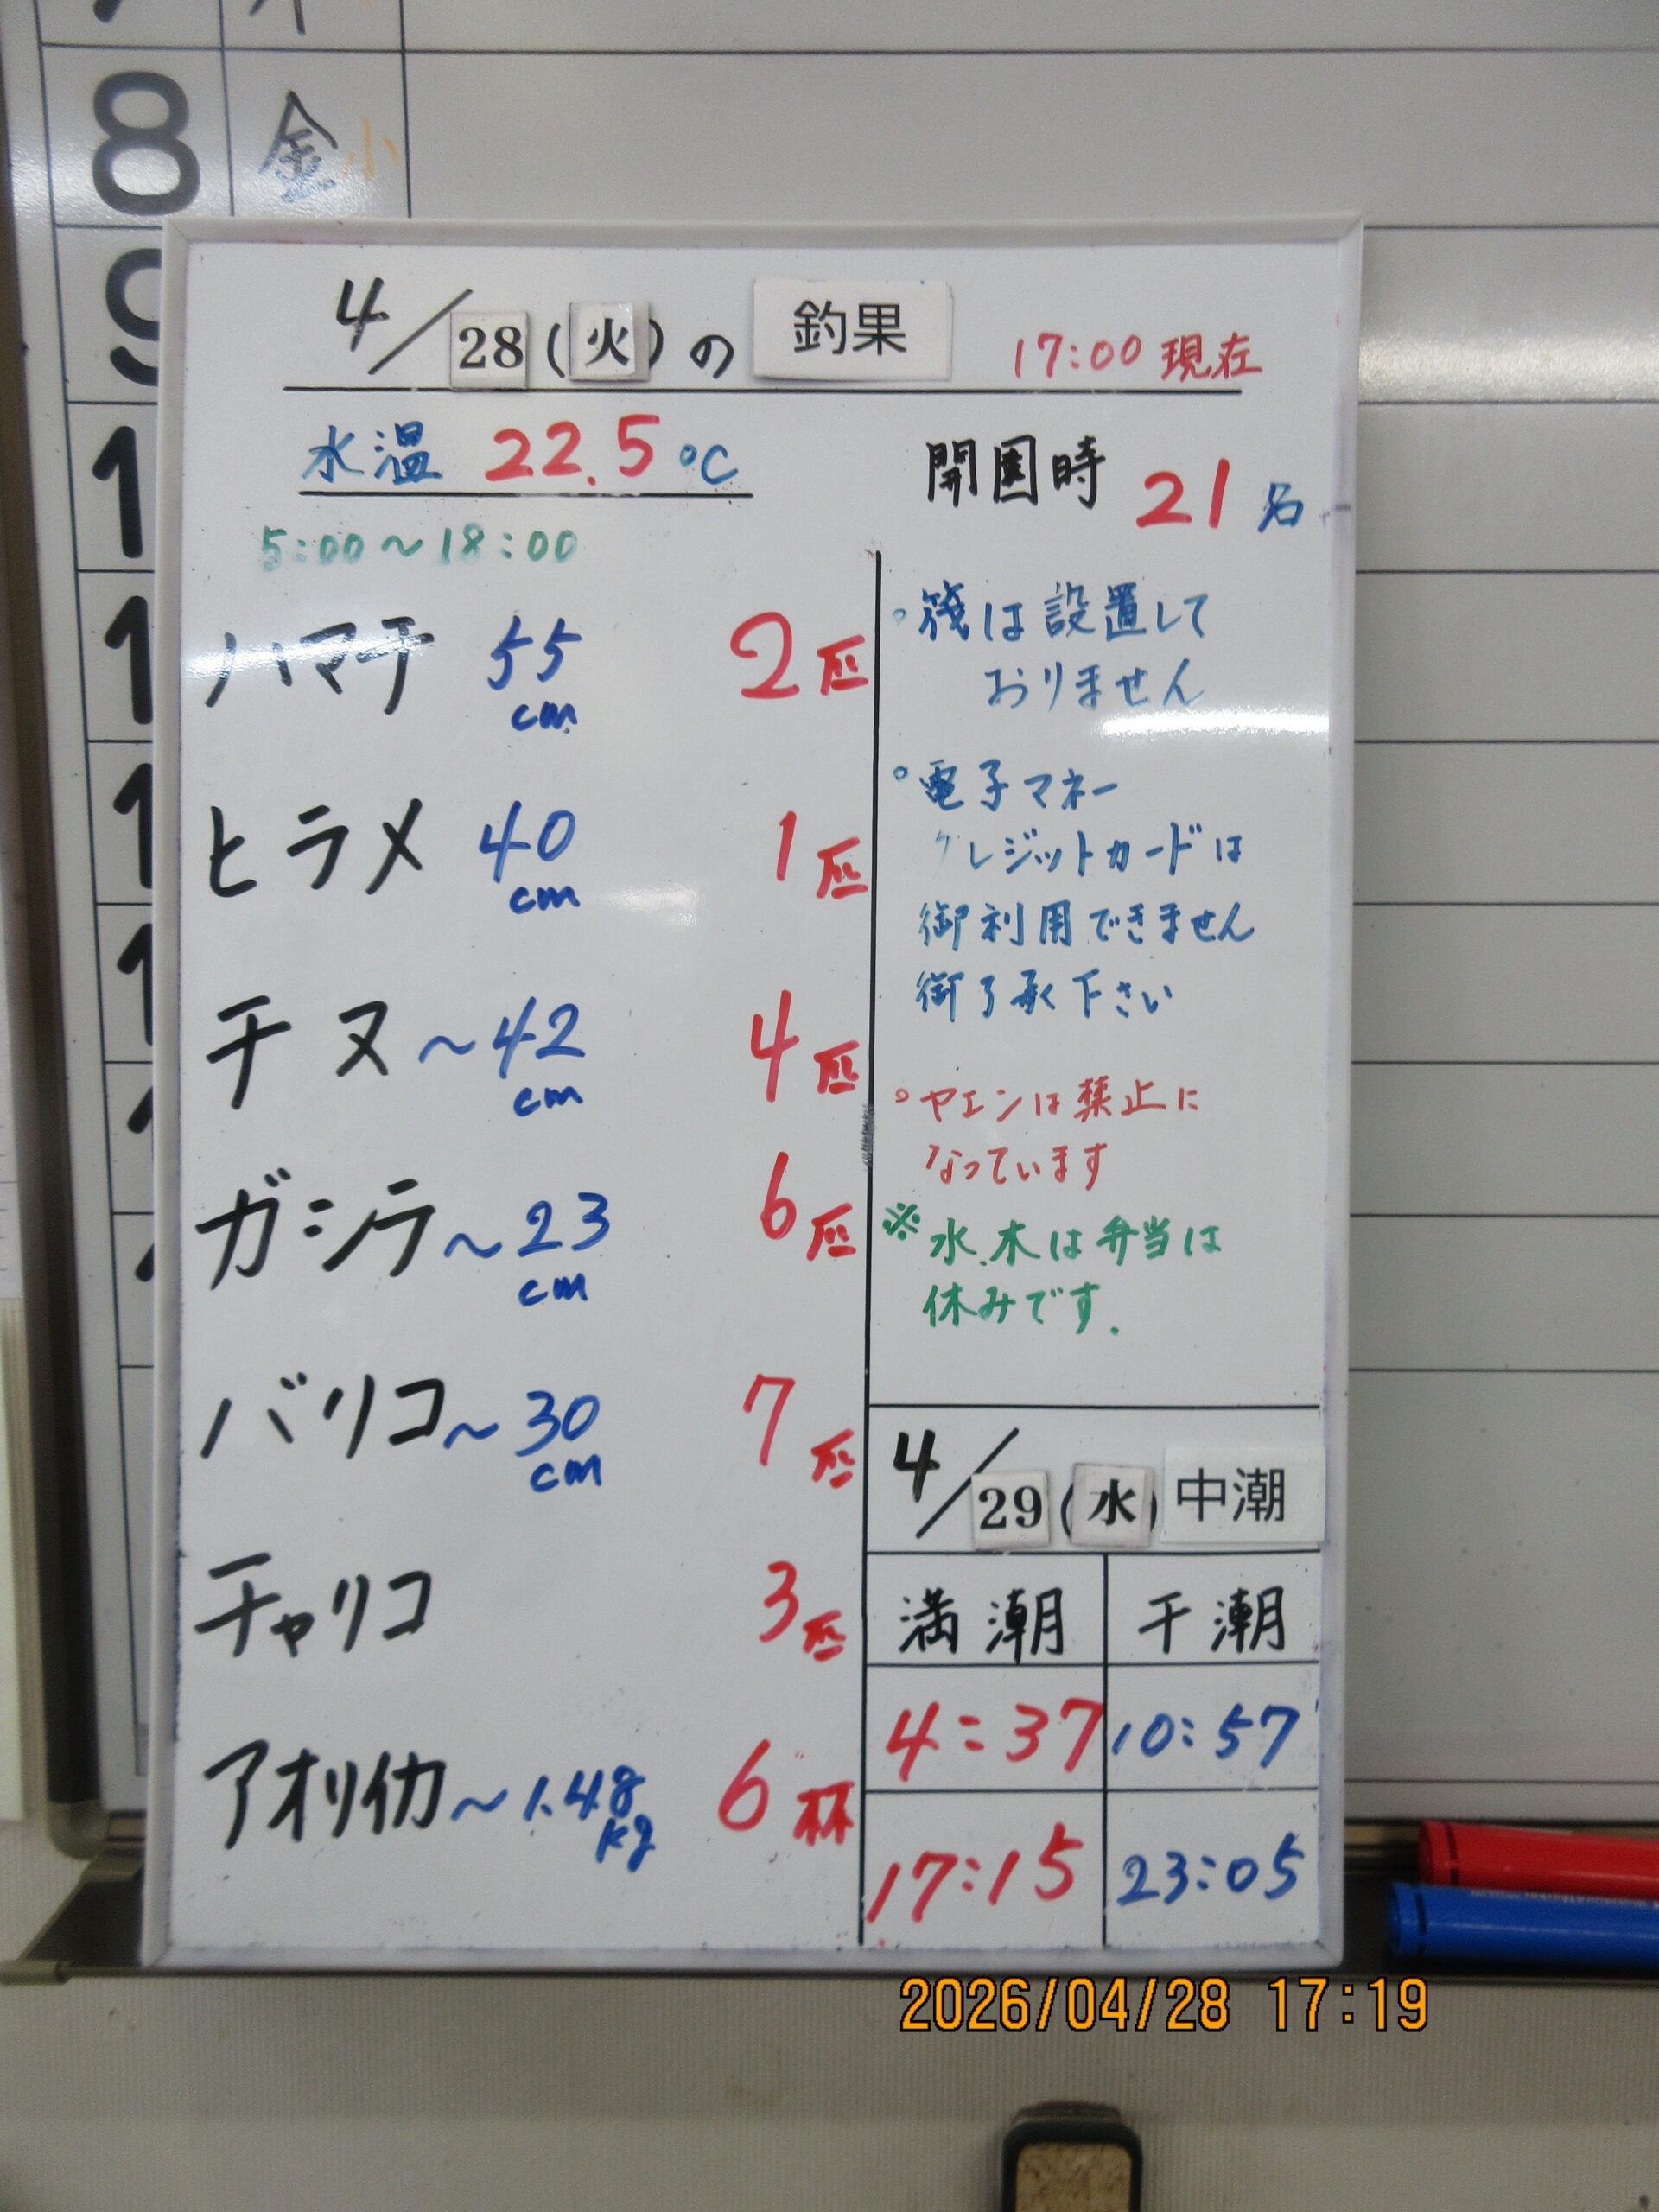 8 金 小
9
4/28(火)の 釣果 17:00 現在
水温 22.5 ℃
開園時 21 名
5:00～18:00
ハマチ 55cm 2匹
ヒラメ 40cm 1匹
チヌ ～42cm 4匹
ガシラ ～23cm 6匹
バリコ ～30cm 7匹
チャリコ 3匹
アオリイカ ～1.48kg 6杯
○筏は設置して
おりません
○電子マネー
クレジットカードは
御利用できません
御了承下さい
○ヤエンは禁止に
なっています
※水、木は弁当は
休みです.
4/29(水) 中潮
満潮 干潮
4:37 10:57
17:15 23:05
2026/04/28 17:19